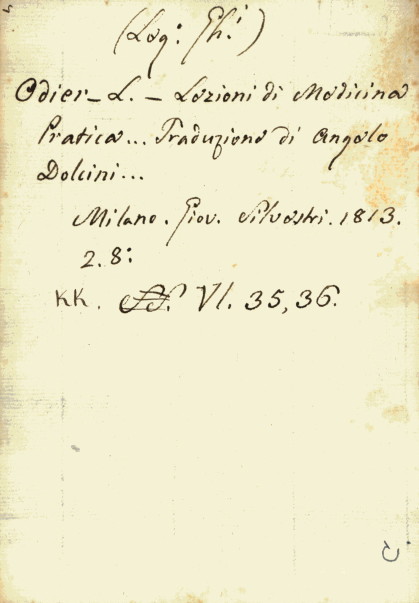 (Leg: Gh.i)
Odier - L. - Lezioni di Medicina
Pratica... Traduzione di Angelo
Dolcini...
Milano. Giov. Silvestri. 1813.
2. 8:
KK. VI. 35, 36.